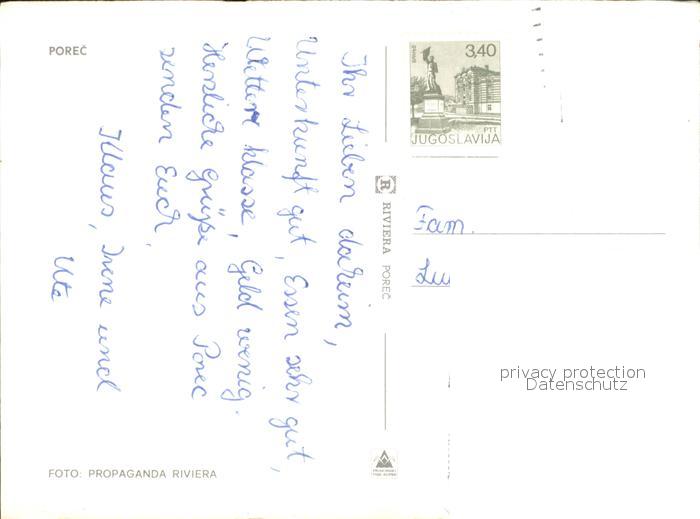 POREČ
Ihr Lieben daheim,
Unterkunft gut, Essen sehr gut,
Wetter klasse, Geld wenig.
Herzliche Grüße aus Porec
senden Euch,
Klaus, Irene und
Uta
FOTO: PROPAGANDA RIVIERA
RIVIERA POREČ
3,40
PTT
JUGOSLAVIJA
Fam.
privacy protection
Datenschutz